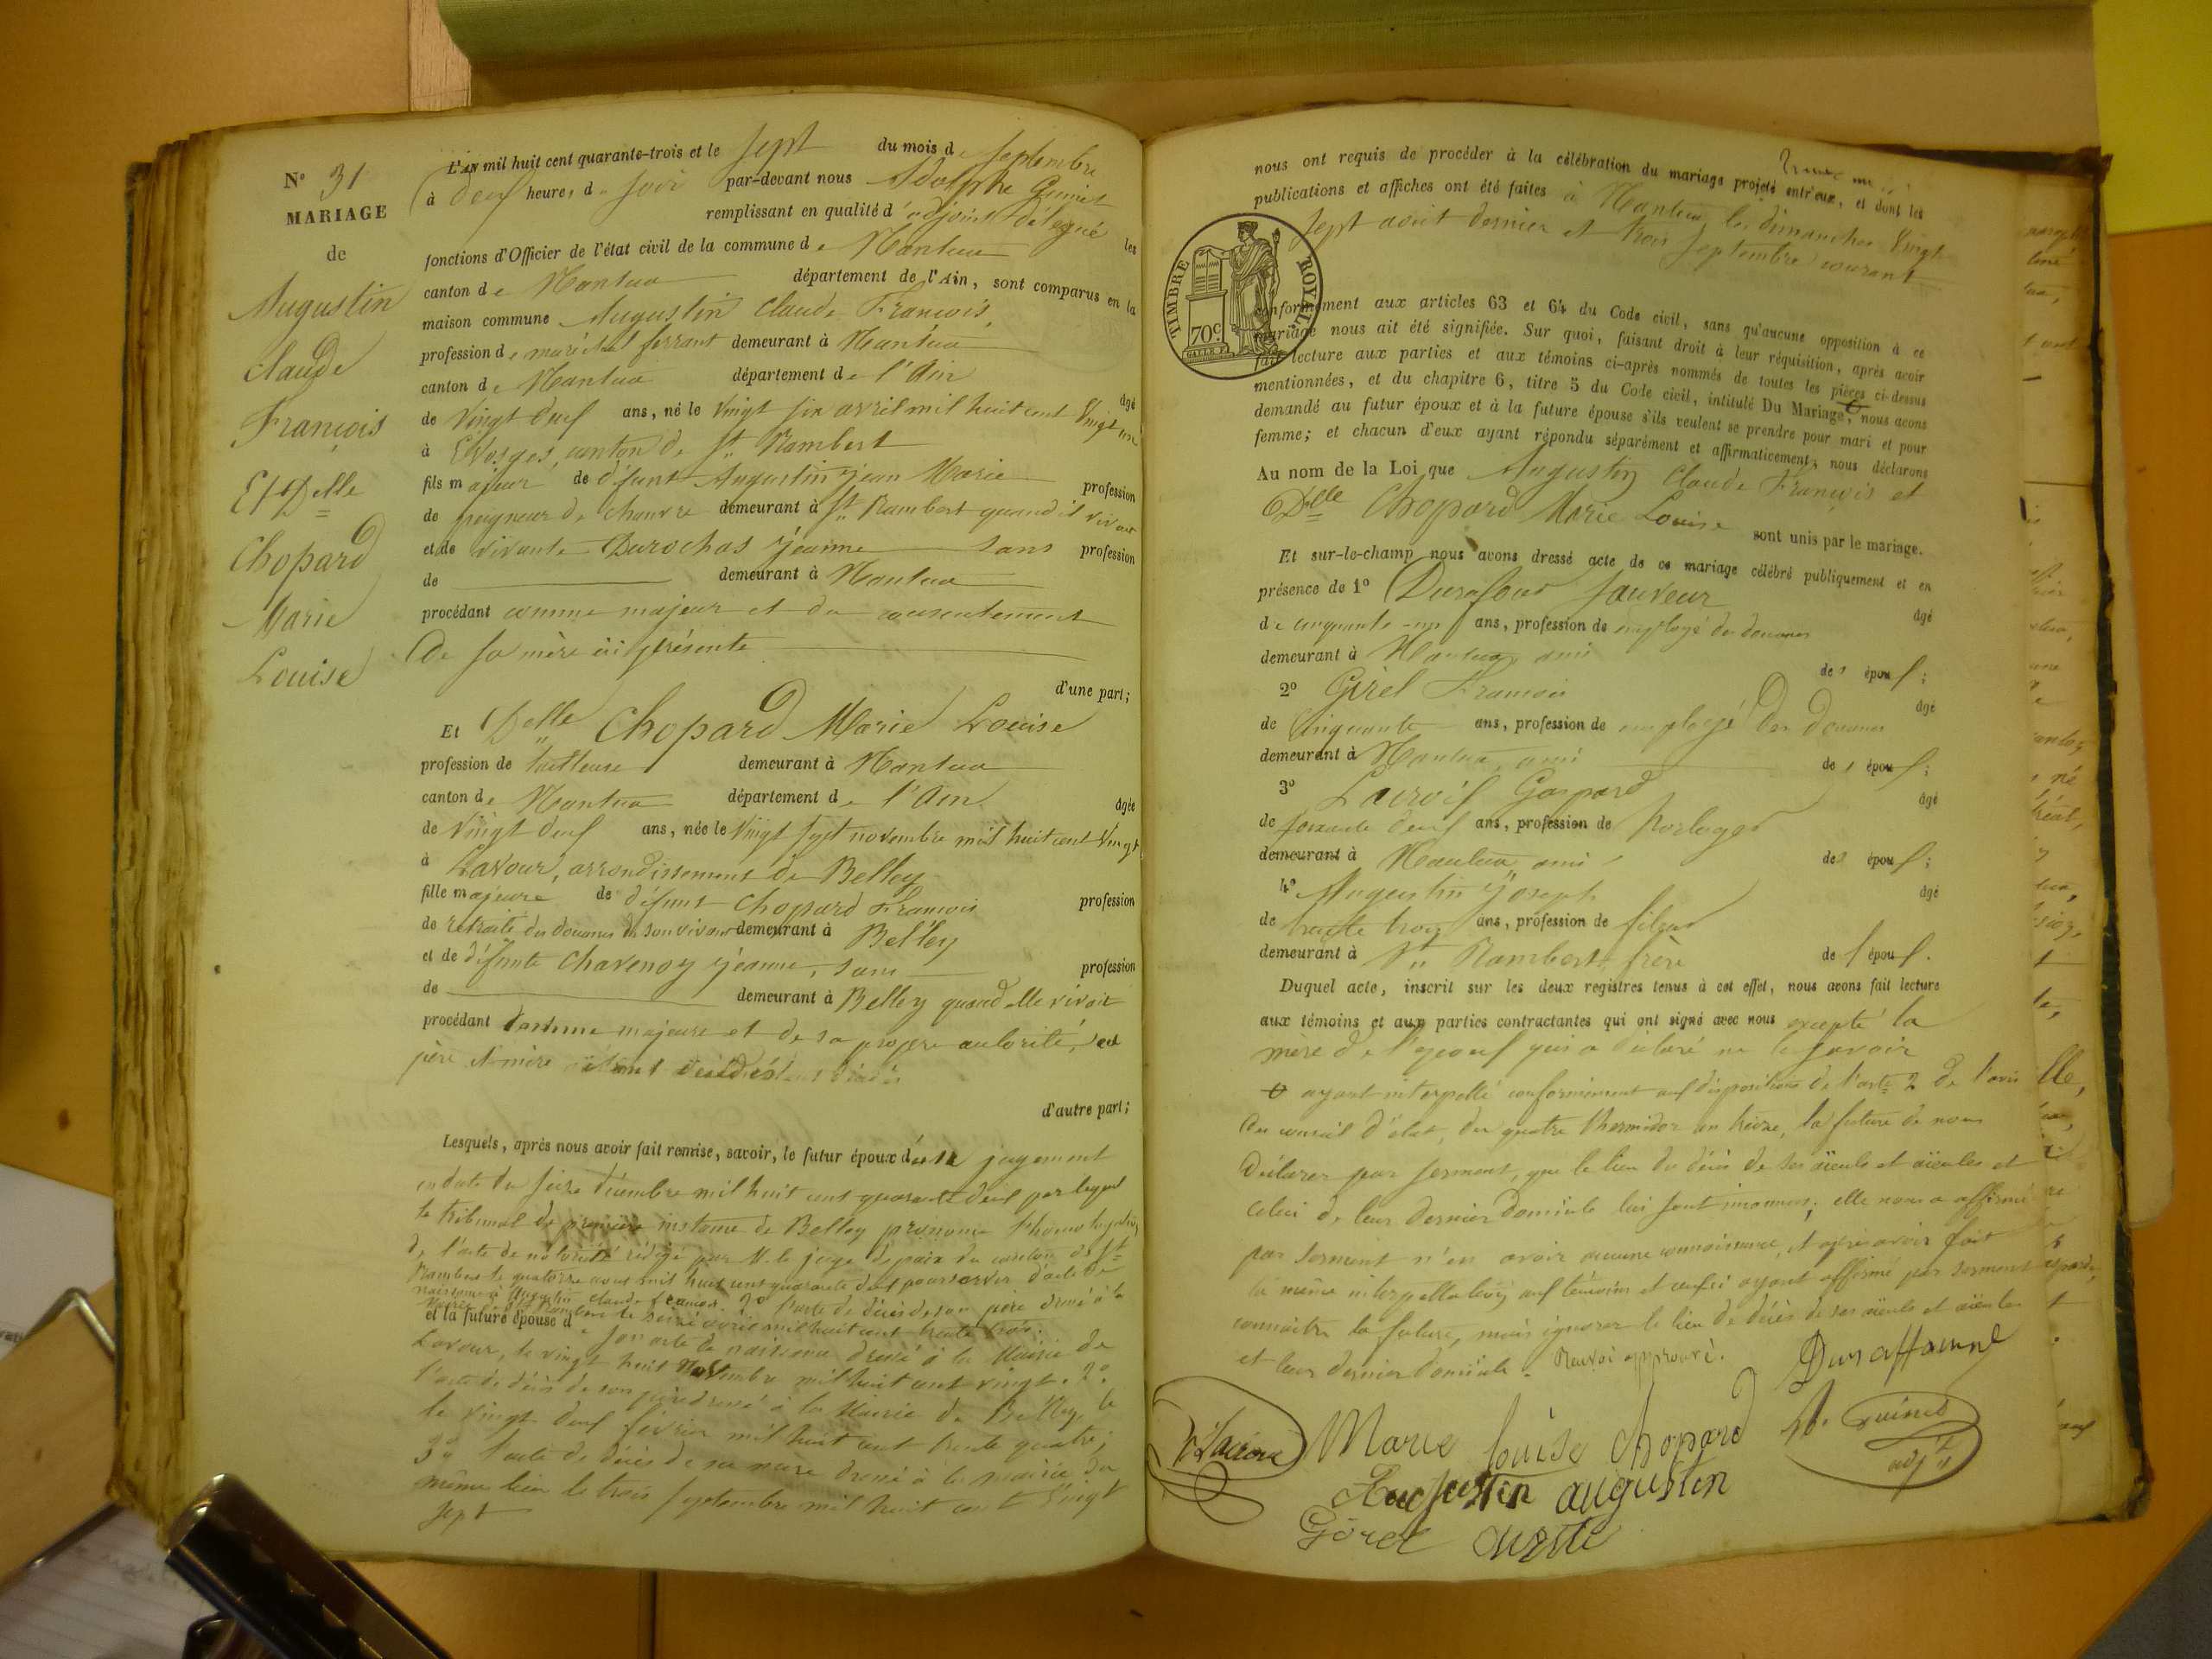 N° 31
MARIAGE
de
Augustin
Claude
François
Et Delle
Chopard
Marie
Louise
L'an mil huit cent quarante-trois et le sept du mois de septembre
à deux heures du soir par-devant nous Adolphe
remplissant en qualité d'adjoint délégué les
fonctions d'Officier de l'état civil de la commune de Nantua
canton de Nantua département de l'Ain, sont comparus en la
maison commune Augustin Claude François,
profession de maréchal ferrant demeurant à Nantua
canton de Nantua département de l'Ain âgé
de vingt deux ans, né le vingt six avril mil huit cent vingt un
à Evosges, canton de St Rambert
fils majeur de défunt Augustin Jean Marie profession
de peigneur de chanvre demeurant à St Rambert quand il vivait
et de vivante Durochas Jeanne sans profession
de demeurant à Nantua
procédant comme majeur et du consentement
de sa mère ici présente
d'une part;
Et Delle Chopard Marie Louise
profession de tailleuse demeurant à Nantua
canton de Nantua département de l'Ain âgée
de vingt deux ans, née le vingt sept novembre mil huit cent vingt
à Lavour, arrondissement de Belley
fille majeure de défunt Chopard François profession
de retraité des douanes de son vivant demeurant à Belley
et de défunte Chavenoy Jeanne, sans profession
de demeurant à Belley quand elle vivait
procédant comme majeure et de sa propre autorité, ses
père et mère étant décédés
d'autre part;
Lesquels, après nous avoir fait remise, savoir, le futur époux d'un jugement
en date du seize décembre mil huit cent quarante deux par lequel
le tribunal de première instance de Belley prononce l'homologation
de l'acte de notoriété rédigé par M. le juge de paix du canton de St
Rambert le quatorze aout mil huit cent quarante deux pour servir d'acte de
naissance à Augustin Claude François. 2° l'acte de décès de son père dressé à la
Mairie de St Rambert le seize avril mil huit cent trente trois.
et la future épouse de son acte de naissance dressé à la Mairie de
Lavour, le vingt huit Novembre mil huit cent vingt. 2°
l'acte de décès de son père dressé à la Mairie de Belley le
le vingt deux février mil huit cent trente quatre;
3° l'acte de décès de sa mère dressé à la mairie du
même lieu le trois septembre mil huit cent vingt
sept
nous ont requis de procéder à la célébration du mariage projeté entr'eux, et dont les
publications et affiches ont été faites à Nantua les dimanches vingt
sept août dernier et trois septembre courant
TIMBRE ROYAL
70 c.
conformément aux articles 63 et 64 du Code civil, sans qu'aucune opposition à ce
mariage nous ait été signifiée. Sur quoi, faisant droit à leur réquisition, après avoir
fait lecture aux parties et aux témoins ci-après nommés de toutes les pièces ci-dessus
mentionnées, et du chapitre 6, titre 5 du Code civil, intitulé Du Mariage, nous avons
demandé au futur époux et à la future épouse s'ils veulent se prendre pour mari et pour
femme; et chacun d'eux ayant répondu séparément et affirmativement, nous déclarons
Au nom de la Loi que Augustin Claude François et
Delle Chopard Marie Louise sont unis par le mariage.
Et sur-le-champ nous avons dressé acte de ce mariage célébré publiquement et en
présence de 1° Durafour Sauveur âgé
de cinquante-un ans, profession de employé des douanes
demeurant à Nantua ami des époux;
2° Girel François âgé
de cinquante ans, profession de employé des douanes
demeurant à Nantua, ami des époux;
3° Lacroix Gaspard âgé
de soixante deux ans, profession de horloger
demeurant à Nantua ami des époux;
4° Augustin Joseph âgé
de trente trois ans, profession de fileur
demeurant à St Rambert frère de l'époux.
Duquel acte, inscrit sur les deux registres tenus à cet effet, nous avons fait lecture
aux témoins et aux parties contractantes qui ont signé avec nous excepté la
mère de l'époux qui a déclaré ne le savoir
ayant interpellé conformément aux dispositions de l'arte 2 de l'avis
du conseil d'état, du quatre thermidor an treize, la future de nous
déclarer par serment, que le lieu du décès de ses aïeuls et aïeules et
celui de leur dernier domicile lui sont inconnus; elle nous a affirmé
par serment n'en avoir aucune connaissance, et après avoir fait
la même interpellation aux témoins et ceux-ci ayant affirmé par serment
connaître la future, mais ignorer le lieu de décès de ses aïeuls et aïeules
et leur dernier domicile. Renvoi approuvé.
Duraffourd
G Lacroix
Marie Louise Chopard
Augustin augustin
adjt
Girel